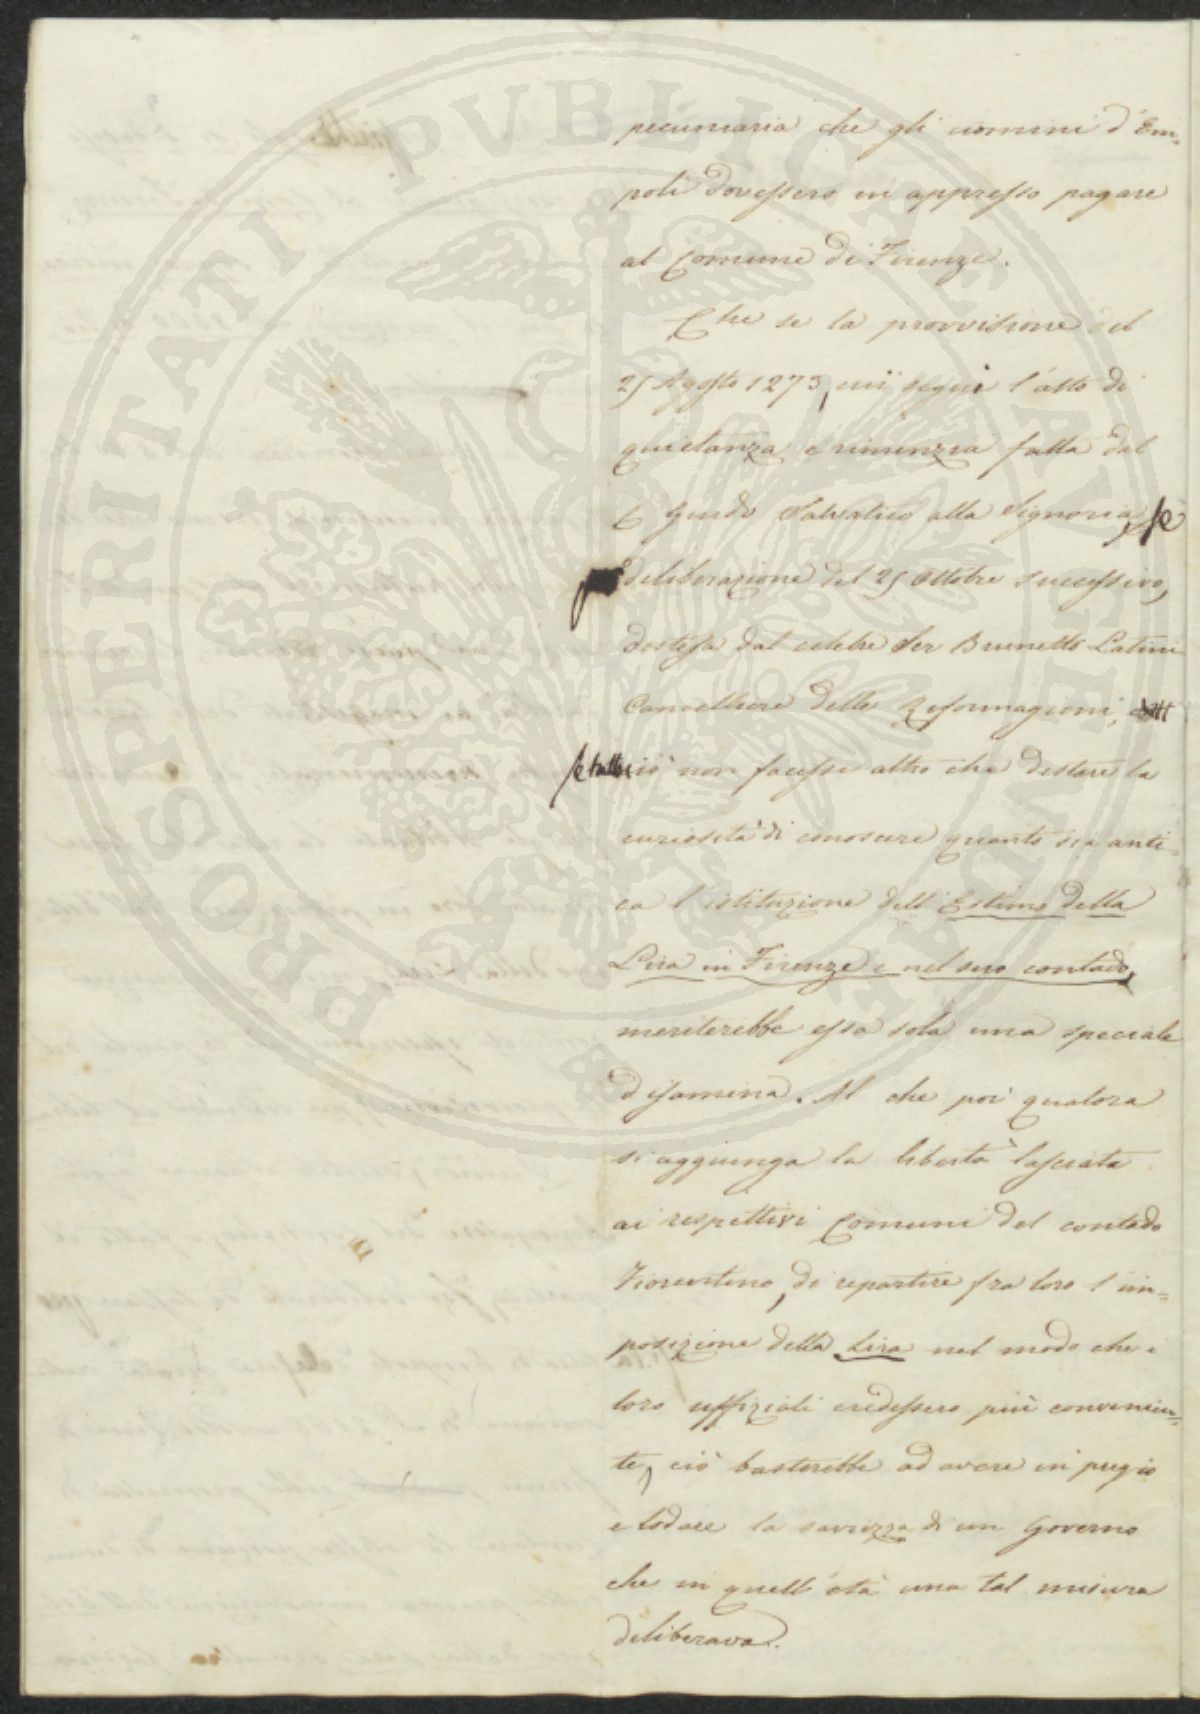 PROSPERITATI PVBLICAE AVGENDAE
pecuniaria che gli uomini d'Em-
poli dovessero in appresso pagare
al Comune di Firenze.
Che se la provvisione del
25 Agosto 1273, cui seguì l'atto di
quietanza e rinunzia fatta dal
C. Guido Salvatico alla Signoria, se
deliberazione del 25 Ottobre successivo,
distesa dal celebre Ser Brunetto Latini
Cancelliere delle Riformagioni,
se tutto ciò non facesse altro che destare la
curiosità di conoscere quanto sia anti-
ca l'istituzione dell'Estimo della
Lira in Firenze e nel suo contado,
meriterebbe essa sola una speciale
disamina. Al che poi qualora
si aggiunga la libertà lasciata
ai respettivi Comuni del contado
Fiorentino, di repartire fra loro l'im=
posizione della Lira nel modo che i
loro uffiziali credessero più convenien=
te, ciò basterebbe ad avere in pregio
e lodare la saviezza di un Governo
che in quell'età una tal misura
deliberava.